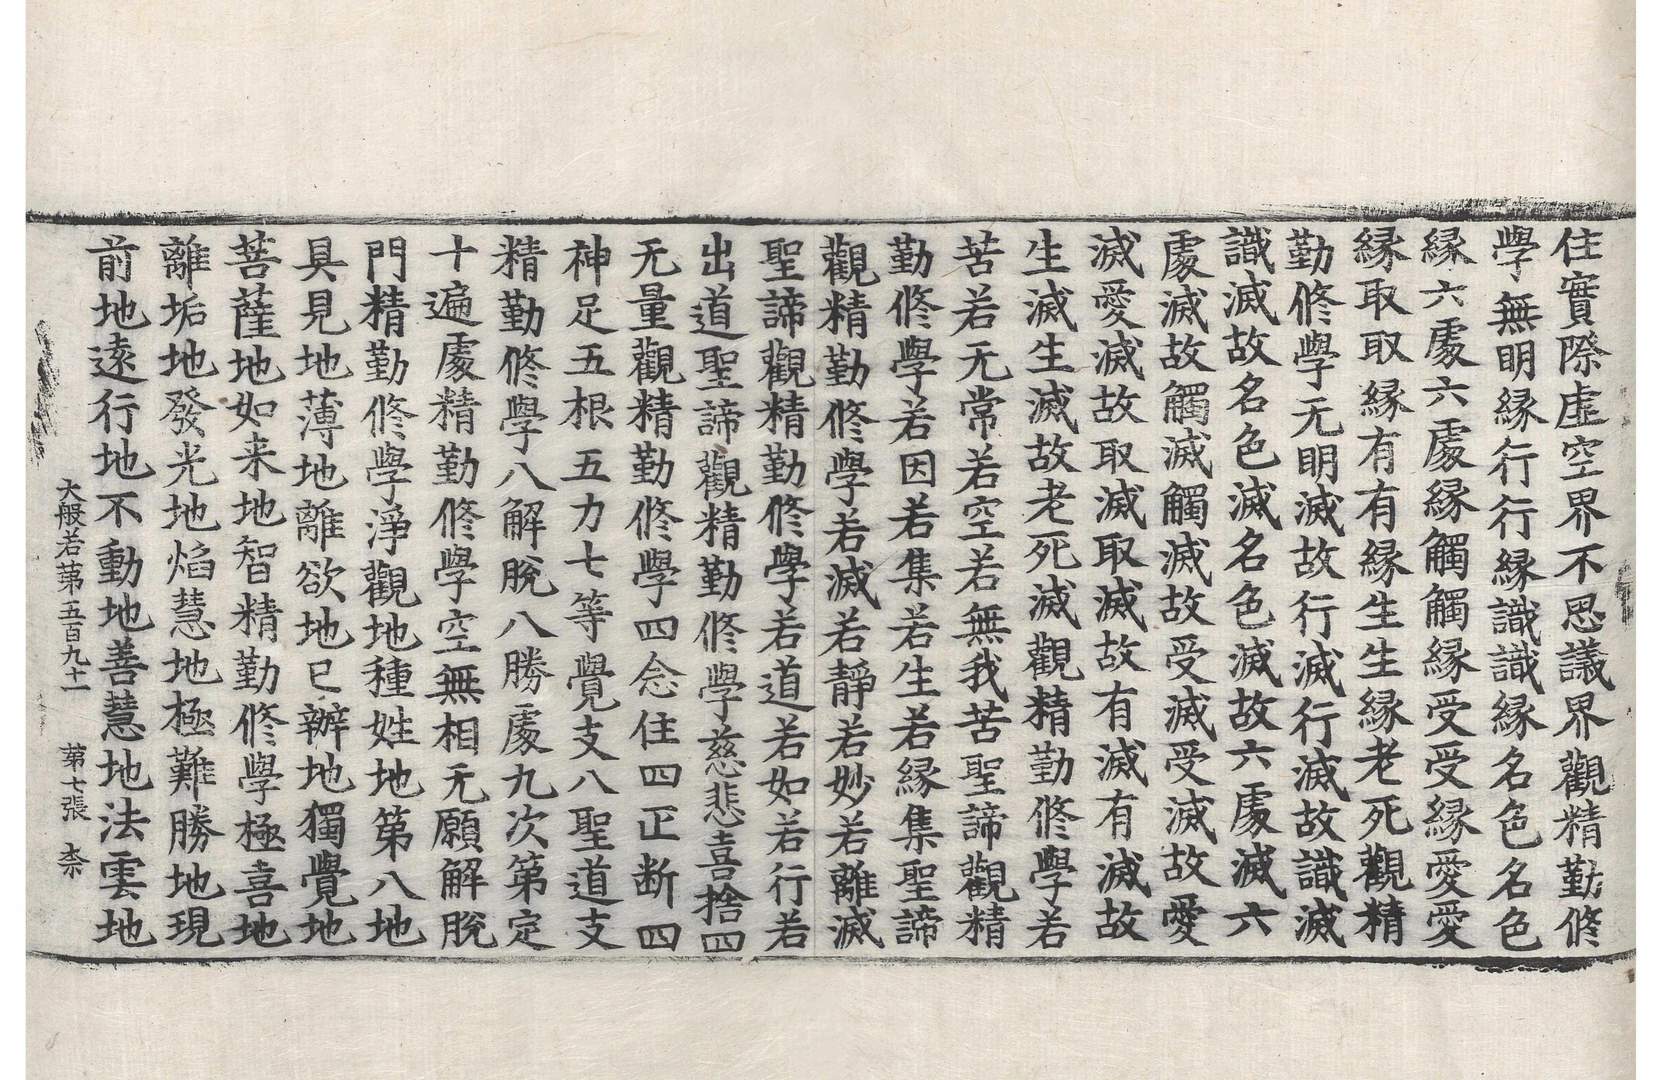 住實際虛空界不思議界觀精勤修
學無明縁行行縁識識縁名色名色
縁六處六處縁觸觸縁受受縁愛愛
縁取取縁有有縁生生縁老死觀精
勤修學无明滅故行滅行滅故識滅
識滅故名色滅名色滅故六處滅六
處滅故觸滅觸滅故受滅受滅故愛
滅愛滅故取滅取滅故有滅有滅故
生滅生滅故老死滅觀精勤修學若
苦若无常若空若無我苦聖諦觀精
勤修學若因若集若生若縁集聖諦
觀精勤修學若滅若靜若妙若離滅
聖諦觀精勤修學若道若如若行若
出道聖諦觀精勤修學慈悲喜捨四
无量觀精勤修學四念住四正断四
神足五根五力七等覺支八聖道支
精勤修學八解脫八勝處九次第定
十遍處精勤修學空無相无願解脫
門精勤修學淨觀地種姓地第八地
具見地薄地離欲地已辦地獨覺地
菩薩地如来地智精勤修學極喜地
離垢地發光地焰慧地極難勝地現
前地遠行地不動地善慧地法雲地
大般若第五百九十一 第七張 柰